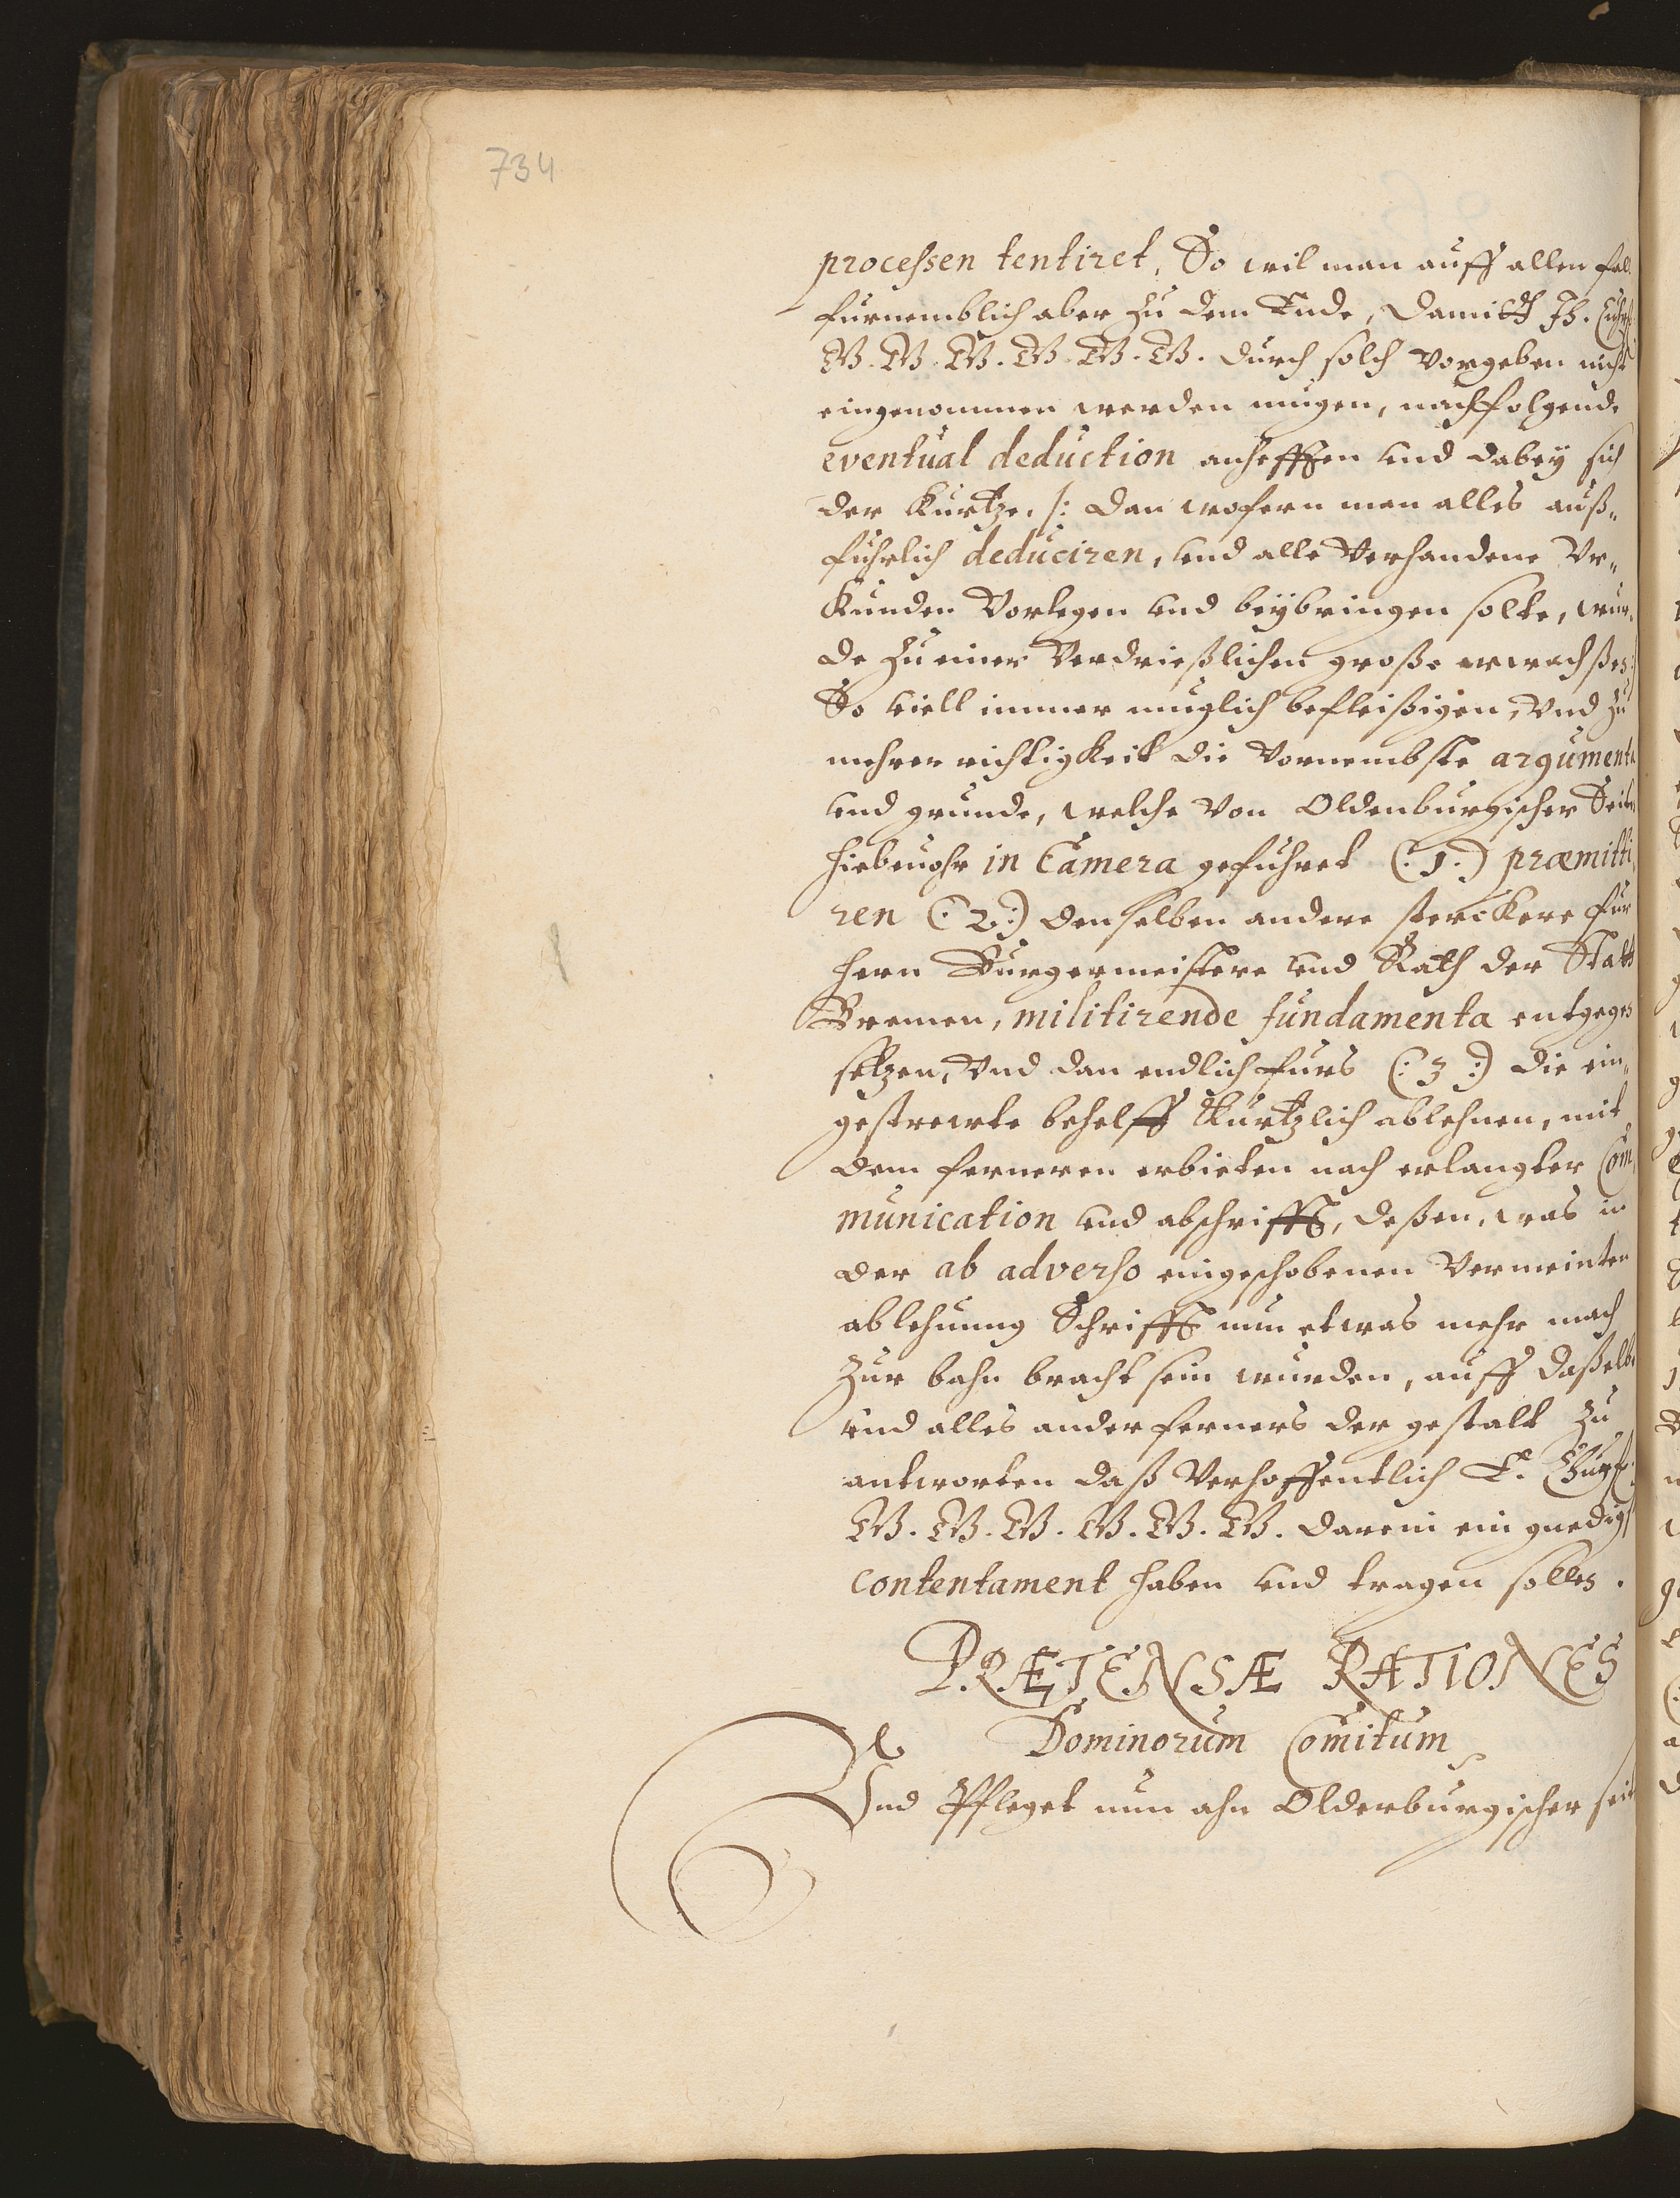 734
processen tentiret, So wil man auff allen fal
furnemblich aber zu dem Ende, damitt Ih. Churf.
W. W. W. W. W. W. durch solch vorgeben nicht
eingenommen werden mugen, nachfolgende
eventual deduction anhefften und dabey sich
der Kurtze, /: dan wofern man alles auß„
fuhrlich deduciren, und alle verhandene Vr„
kunden Vorlegen und beybringen solte, wur„
de zu einer Verdrießlichen große erwachßen:/
So viell immer muglich befleißigen, Vnd zu
mehrer richtigkeit die Vornembste argumenta
und grunde, welche von Oldenburgischer Seiten
hiebeuohr in Camera gefuhret (:1.) præmitti„
ren (:2:) denselben andere sterckere fur
Hern Burgermeistere und Rath der Statt
Bremen, militirende fundamenta entgegen
setzen, Vnd dan endlich furs (:3:) die ein„
gestrewte behelff Kurtzlich ablehnen, mit
dem ferneren erbieten nach erlangter Com„
munication und abschrifft, deßen, was in
der ab adverso eingeschobenen vermeinten
ablehnung Schrifft nun etwas mehr mach
zur bahn bracht sein wurden, auff daßelbe
und alles ander ferners der gestalt zu
antworten daß Verhoffentlich E. Churf.
W. W. W. W. W. W. darein ein gnedigst
contentament haben und tragen sollen.
PRÆTENSÆ RATIONES
Dominorum Comitum
Vnd Pfleget nun ahn Oldenburgischer seit